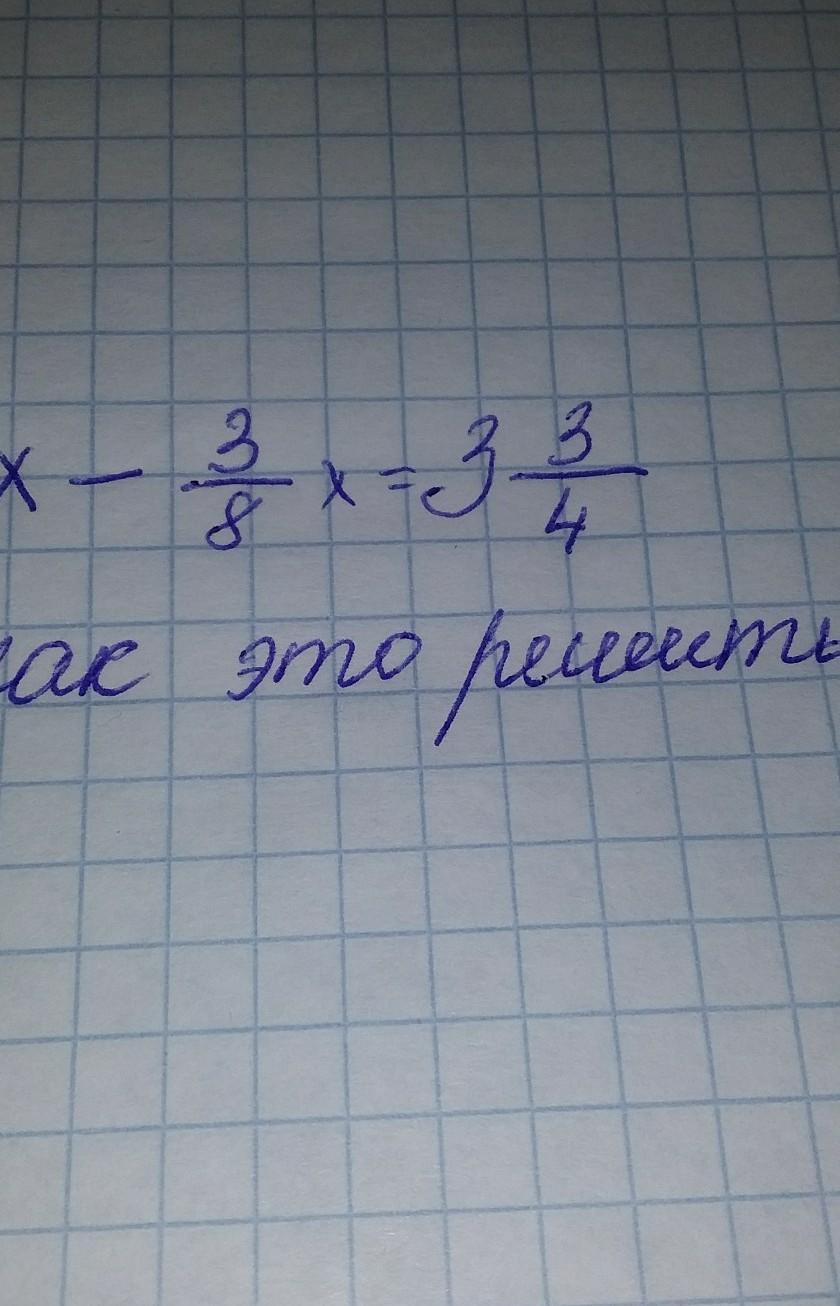 x - 3/8 x = 3 3/4
как это решить